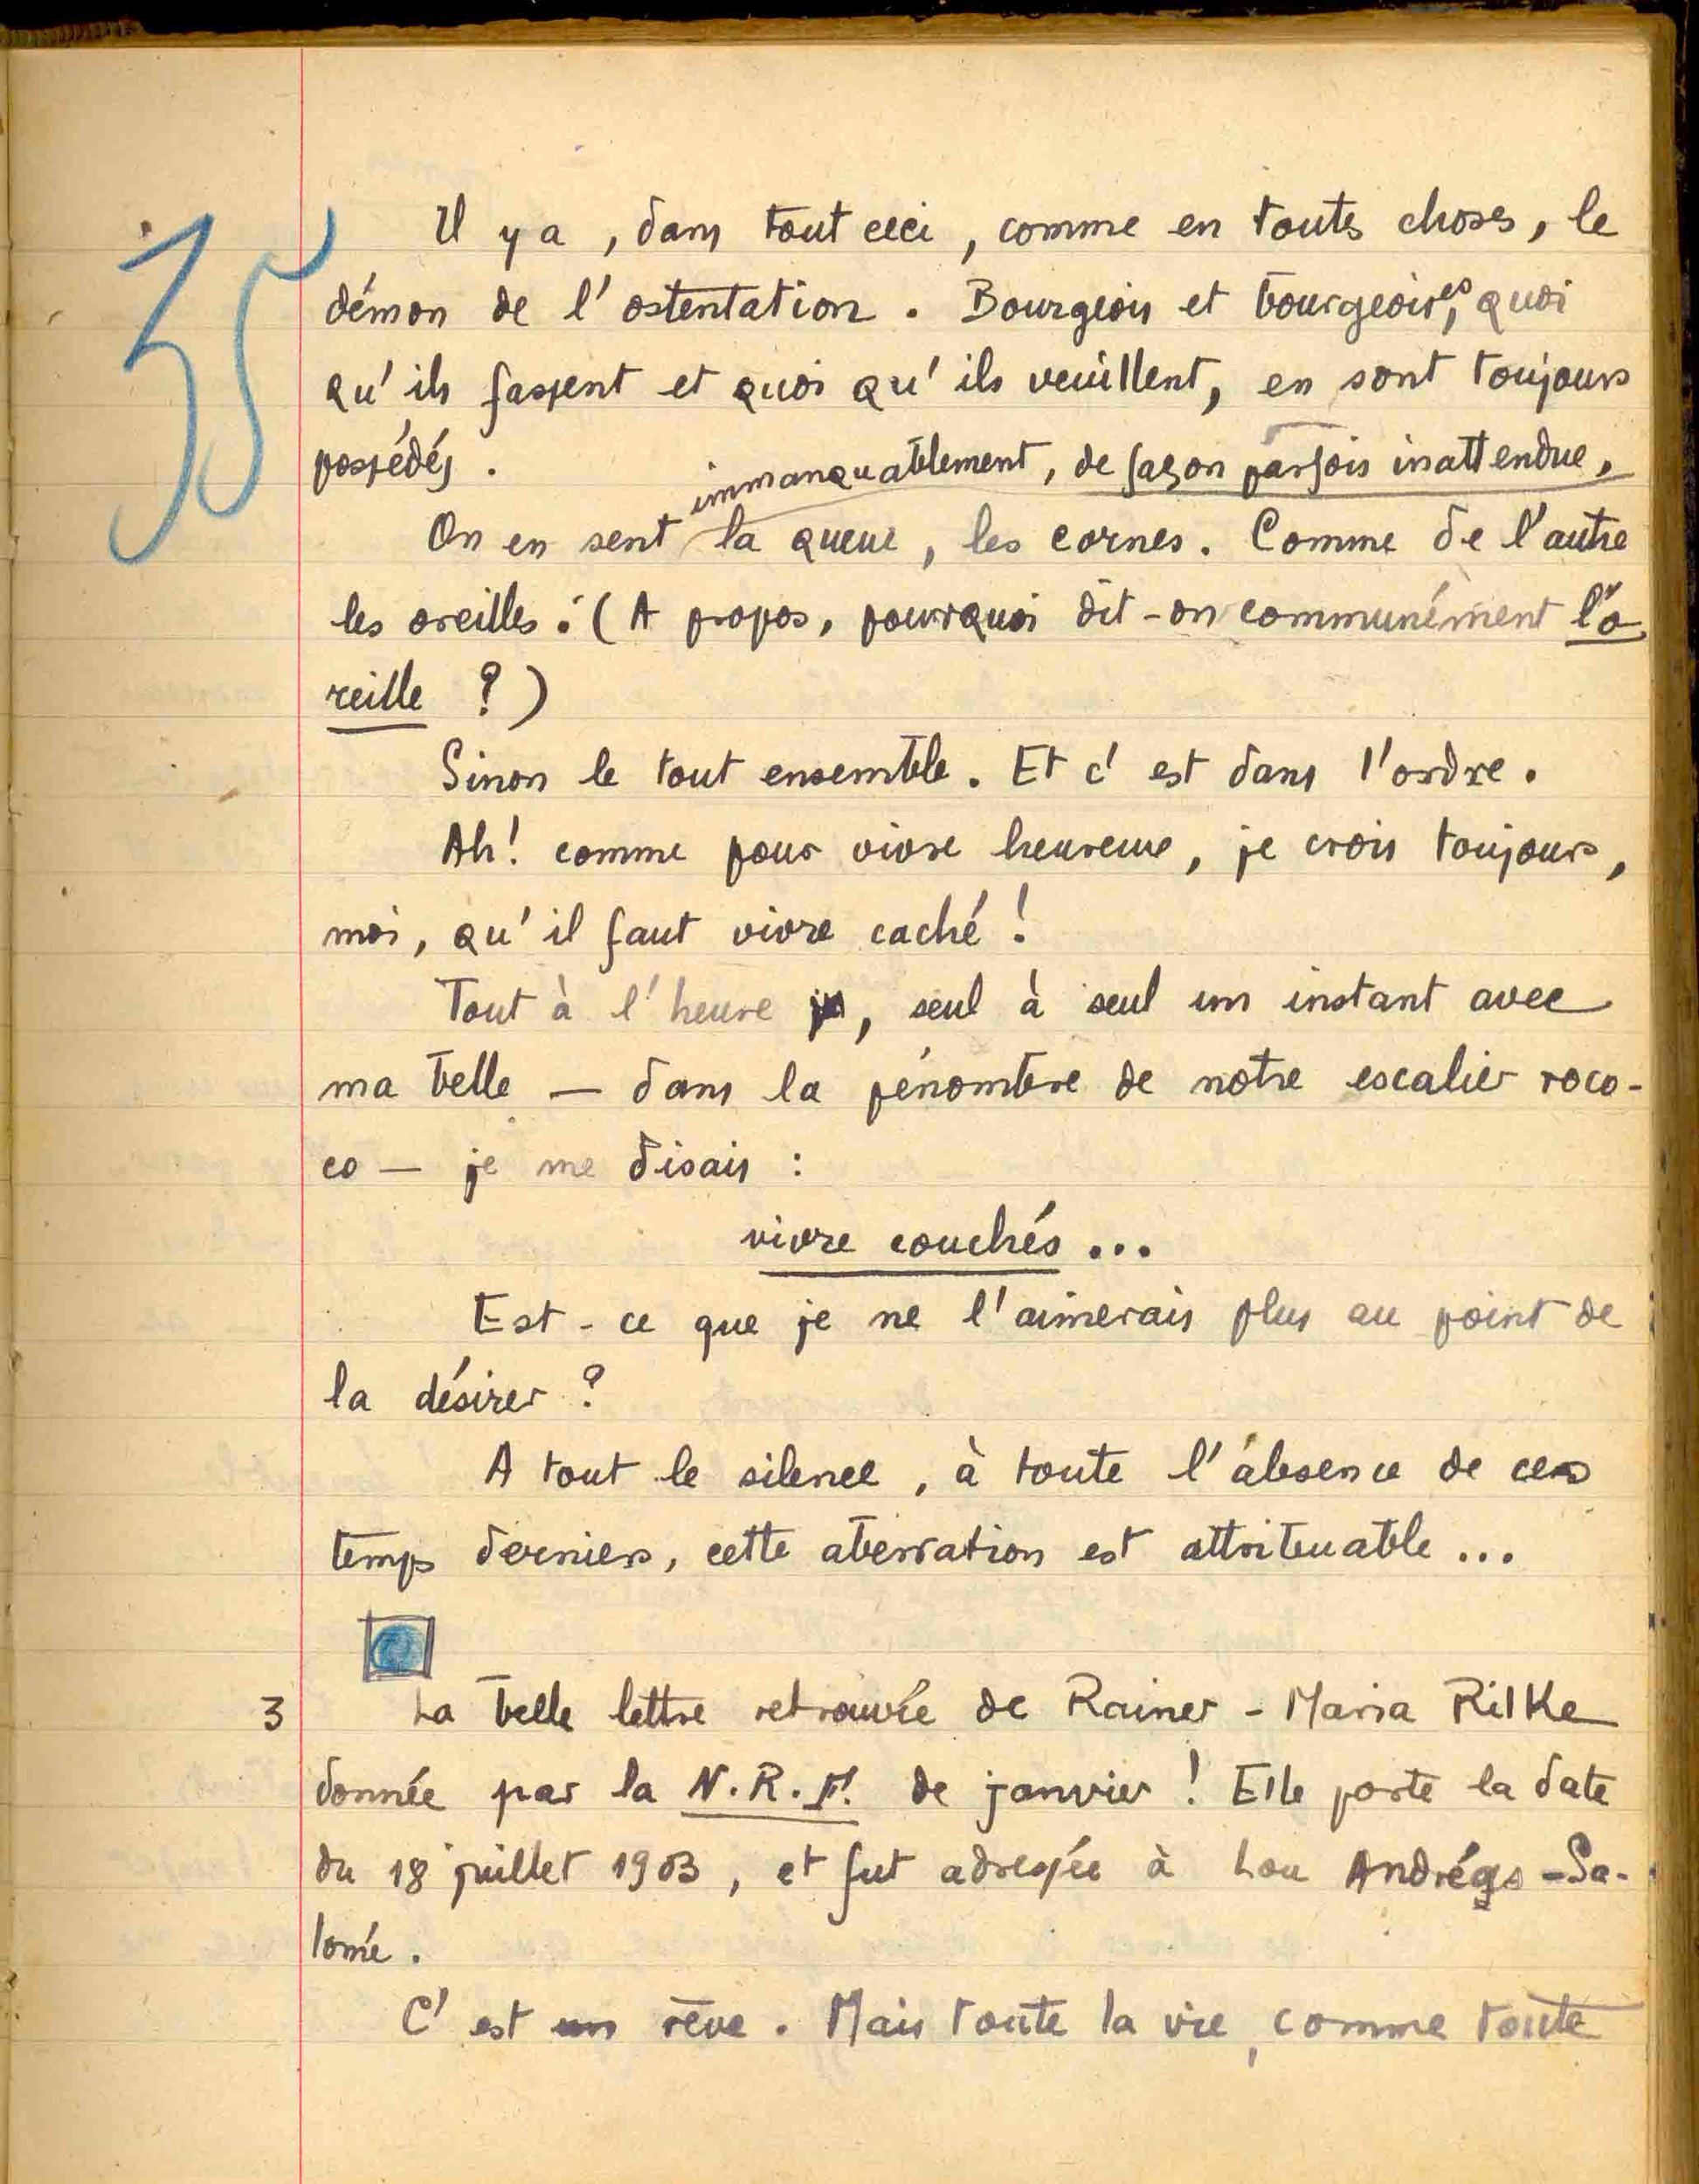 35
Il y a, dans tout ceci, comme en toutes choses, le
démon de l'ostentation. Bourgeois et bourgeoises, quoi
qu'ils fassent et quoi qu'ils veuillent, en sont toujours
possédés.
immanquablement, de façon parfois inattendue,
On en sent la queue, les cornes. Comme de l'autre
les oreilles. (A propos, pourquoi dit-on communément l'o
reille ?)
Sinon le tout ensemble. Et c'est dans l'ordre.
Ah! comme pour vivre heureux, je crois toujours,
moi, qu'il faut vivre caché!
Tout à l'heure je, seul à seul un instant avec
ma belle — dans la pénombre de notre escalier roco-
co — je me disais :
vivre couchés...
Est-ce que je ne l'aimerais plus au point de
la désirer ?
A tout le silence, à toute l'absence de ces
temps derniers, cette aberration est attribuable...
3 La belle lettre retrouvée de Rainer-Maria Rilke
donnée par la N.R.F. de janvier! Elle porte la date
du 18 juillet 1903, et fut adressée à Lou Andréas-Sa-
lomé.
C'est un rêve. Mais toute la vie, comme toute